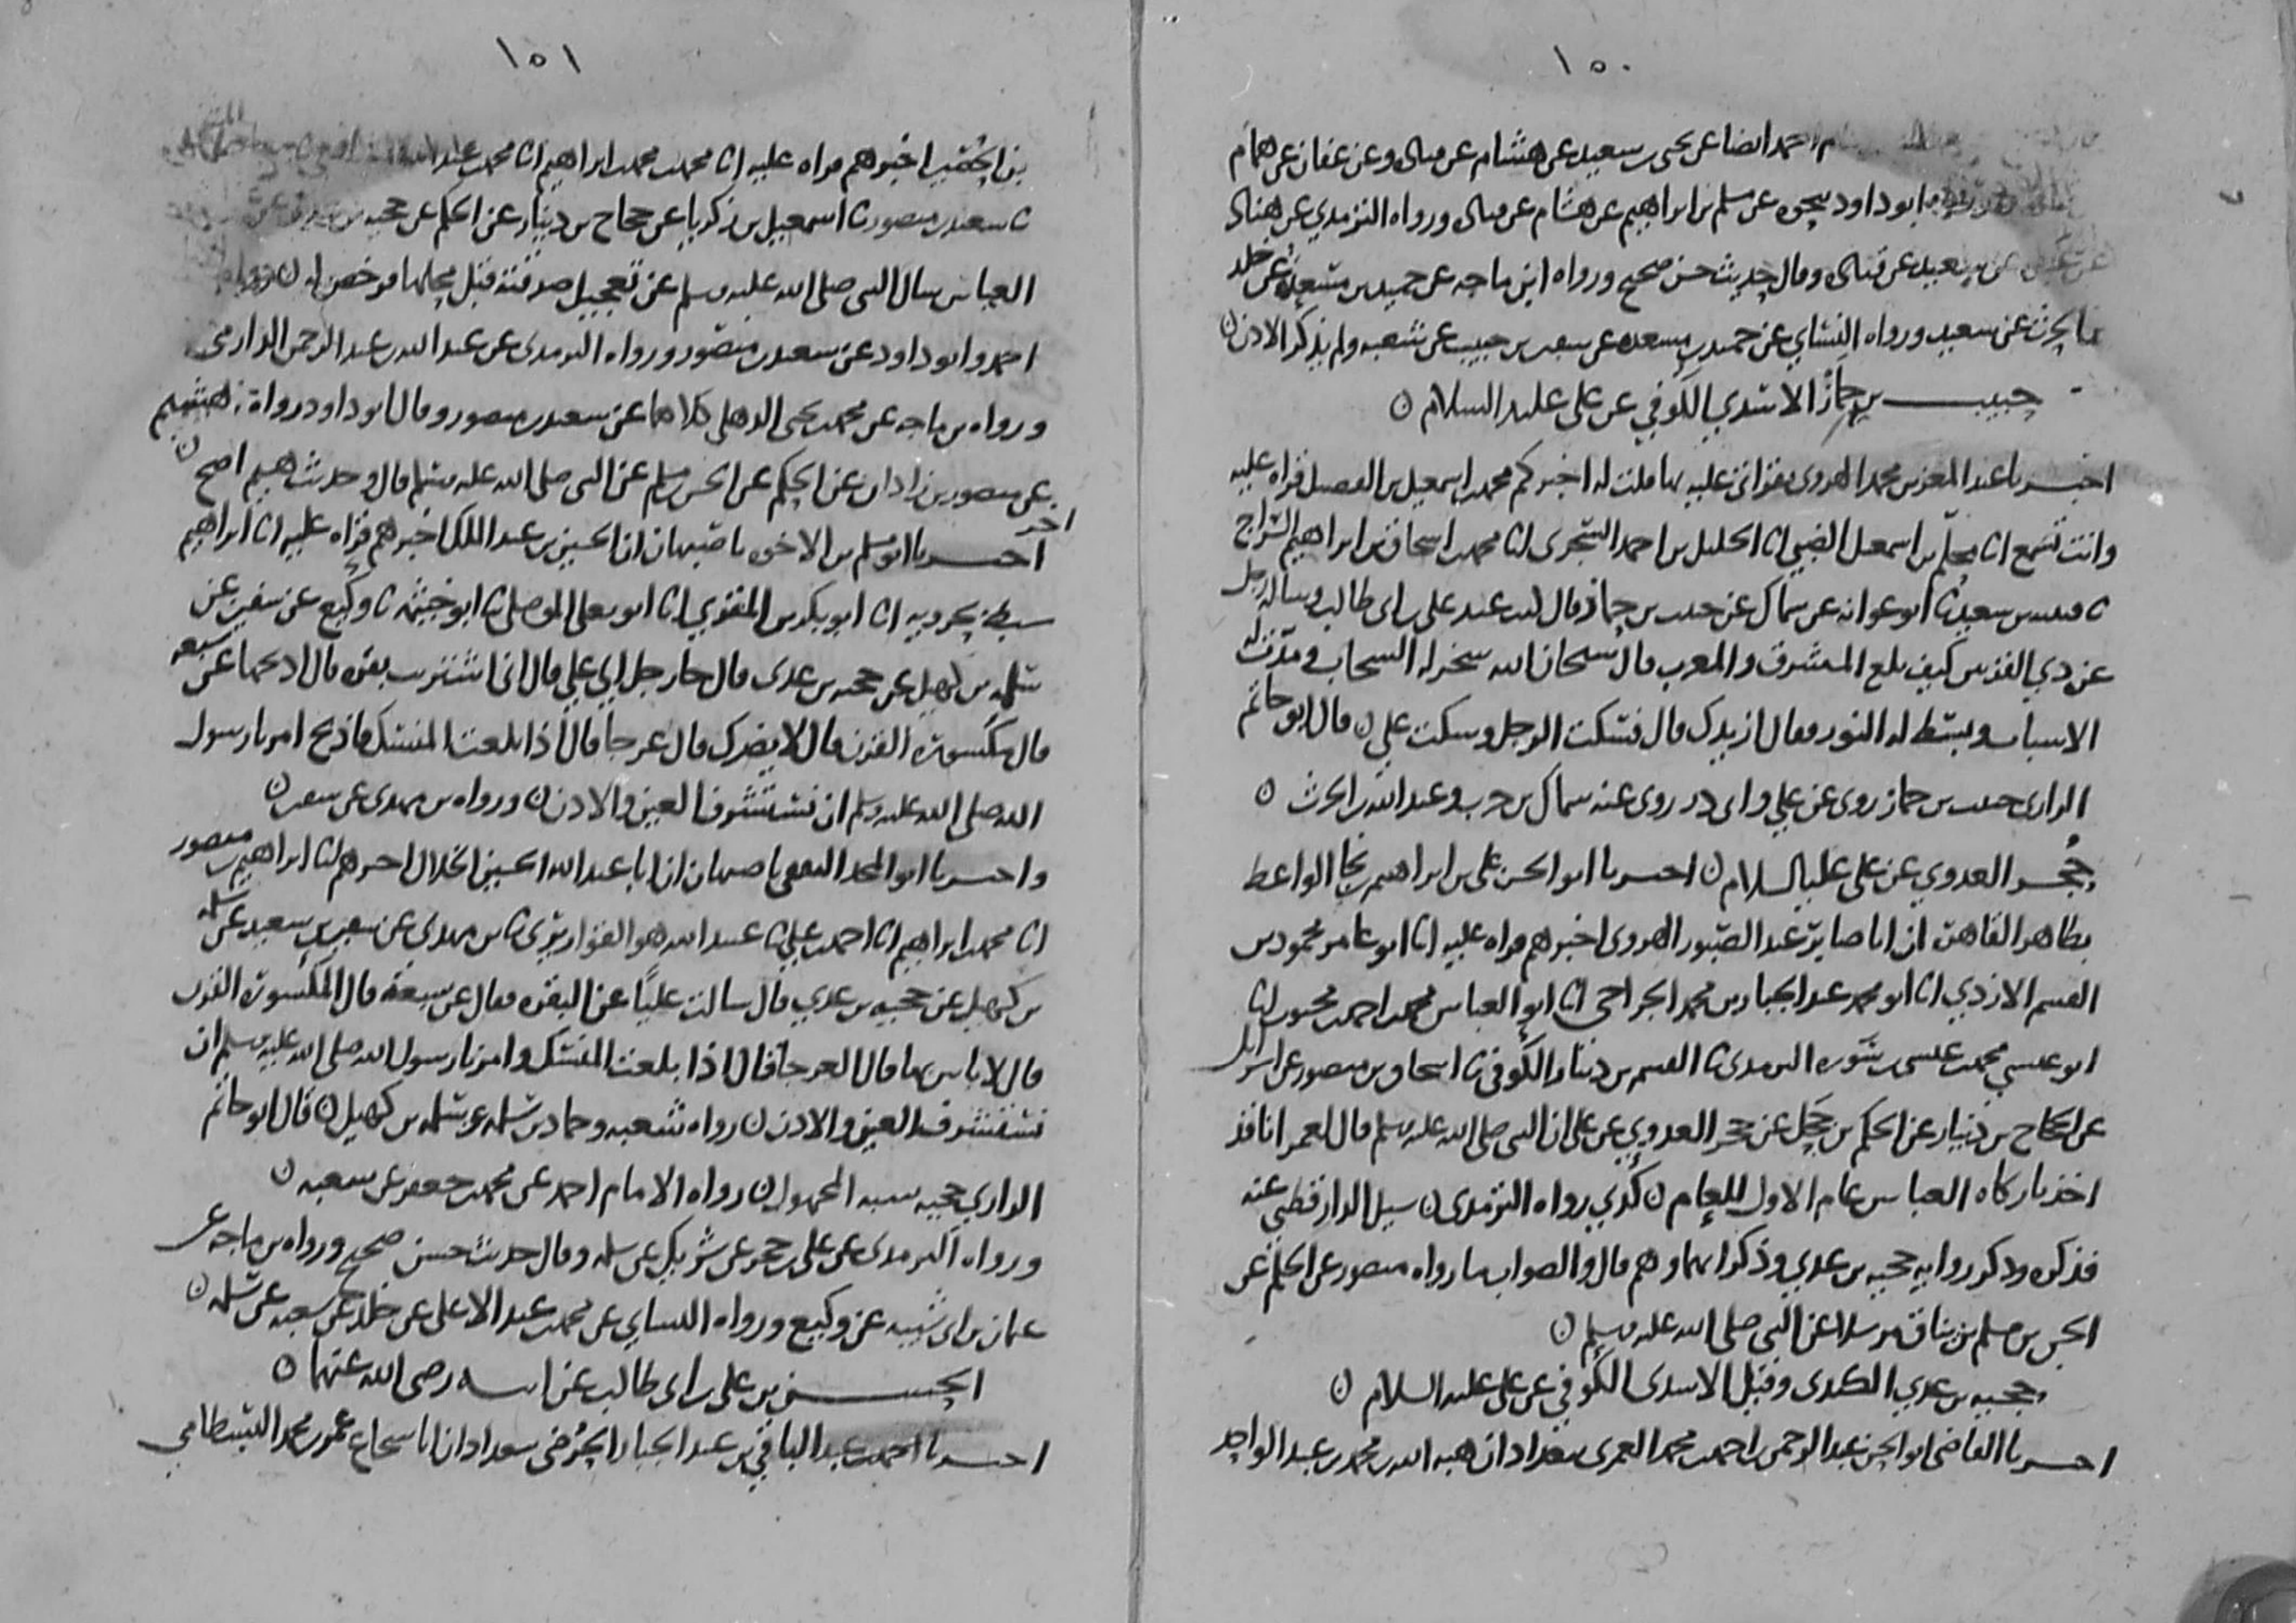 ١٥٠
احمد ايضا عن يحيى بن سعيد عن هشام عن قتادة وعن عفان عن همام
ابو داود بنحوه عن مسلم بن ابراهيم عن هشام عن قتادة ورواه الترمذي عن هناد
سعيد عن قتادة وقال حديث حسن صحيح ورواه ابن ماجه عن حميد بن مسعدة عن خلد
بن الحرث عن سعيد ورواه النسائي عن حميد بن مسعدة عن سفين بن حبيب عن شعبه ولم يذكر الاذن
حبيب بن حماز الاسدي الكوفي عن علي عليه السلام
اخبرنا عبد المعز بن محمد الهروي بقراتي عليه بها قلت له اخبركم محمد بن اسمعيل بن الفضيل قراه عليه
وانت تسمع انا محلم بن اسمعيل الضبي انا الخليل بن احمد السجزي انا محمد بن اسحاق بن ابراهيم السراج
نا قتيبه بن سعيد نا ابو عوانه عن سماك عن حبيب بن حماز قال كنت عند علي بن ابي طالب وساله رجل
عن ذي القرنين كيف بلغ المشرق والمغرب قال سبحان الله سخر له السحاب ومدت له
الاسباب وبسط له النور فقال ازيدك قال فسكت الرجل وسكت علي قال ابو حاتم
الرازي حبيب بن حماز روى عن علي وابي ذر روى عنه سماك بن حرب وعبد الله بن الحرث
حجر العدوي عن علي عليه السلام اخبرنا ابو الحسن علي بن ابراهيم بن نجا الواعظ
بظاهر القاهرة ان ابا صابر عبد الصبور الهروي اخبرهم قراه عليه انا ابو عامر محمود بن
القسم الازدي انا ابو محمد عبد الجبار بن محمد الجراحي انا ابو العباس محمد بن احمد بن محبوب انا
ابو عيسى محمد بن عيسى بن سوره الترمذي نا القسم بن دينار الكوفي نا اسحاق بن منصور عن اسرايل
عن الحجاج بن دينار عن الحكم بن جحل عن حجر العدوي عن علي ان النبي صلى الله عليه وسلم قال لعمر انا قد
اخذنا زكاة العباس عام الاول للعام كذي رواه الترمذي سيل الدارقطني عنه
فذكره وذكر روايه حجيه بن عدي وذكر انهما وهم قال والصواب ما رواه منصور عن الحكم عن
الحسن بن مسلم بن يناق مرسلا عن النبي صلى الله عليه وسلم
حجيه بن عدي الكندي وقيل الاسدي الكوفي عن علي عليه السلام
اخبرنا القاضي ابو الحسن عبد الرحمن بن احمد بن محمد العمري ببغداد ان هبه الله بن محمد بن عبد الواحد
١٥١
بن الحصين اخبرهم قراه عليه انا محمد بن محمد بن ابراهيم انا محمد بن عبد الله
نا سعيد بن منصور نا اسمعيل بن زكريا عن حجاج بن دينار عن الحكم عن حجيه بن عدي عن
العباس سال النبي صلى الله عليه وسلم عن تعجيل صدقته قبل محلها فرخص له رواه
احمد وابو داود عن سعيد بن منصور ورواه الترمذي عن عبد الله بن عبد الرحمن الدارمي
ورواه بن ماجه عن محمد بن يحيى الذهلي كلاهما عن سعيد بن منصور وقال ابو داود رواه هشيم
عن منصور بن زادان عن الحكم عن الحسن بن مسلم عن النبي صلى الله عليه وسلم قال وحديث هشيم اصح
اخر
اخبرنا ابو مسلم بن الاخوه باصبهان ان الحسين بن عبد الملك اخبرهم قراه عليه انا ابراهيم
سبط بحرويه انا ابو بكر بن المقري انا ابو يعلى الموصلي نا ابو خيثمه نا وكيع عن سفين عن
سلمه بن كهيل عن حجيه بن عدي قال جا رجل الي علي قال اني اشتريت بقره قال اذبحها عن سبعه
قال مكسورة القرن قال لا يضرك قال عرجا قال اذا بلغت المنسك فاذبح امرنا رسول
الله صلى الله عليه وسلم ان نستشرف العين والاذن ورواه بن مهدي عن سفين
واخبرنا ابو المجد الثقفي باصبهان ان ابا عبد الله الحسين الخلال اخبرهم انا ابراهيم بن منصور
انا محمد بن ابراهيم انا احمد بن علي نا عبيد الله هو القواريري نا بن مهدي عن سفين بن سعيد عن سلمه
بن كهيل عن حجيه بن عدي قال سالت عليا عن البقره فقال عن سبعة قال المكسورة القرن
قال لا باس بها قال العرجا قال اذا بلغت المنسك وامرنا رسول الله صلى الله عليه وسلم ان
نستشرف العين والاذن رواه شعبه وحماد بن سلمه عن سلمه بن كهيل قال ابو حاتم
الرازي حجيه شبيه المجهول رواه الامام احمد عن محمد بن جعفر عن شعبه
ورواه الترمذي عن علي بن حجر عن شريك عن سلمه وقال حديث حسن صحيح ورواه بن ماجه عن
عثمان بن ابي شيبه عن وكيع ورواه النساي عن محمد بن عبد الاعلى عن خلد عن شعبه عن سلمه
الحسن بن علي بن ابي طالب عن ابيه رضي الله عنهما
اخبرنا احمد بن عبد الباقي بن عبد الجبار الحرضي ببغداد ان ابا شجاع عمر بن محمد البسطامي